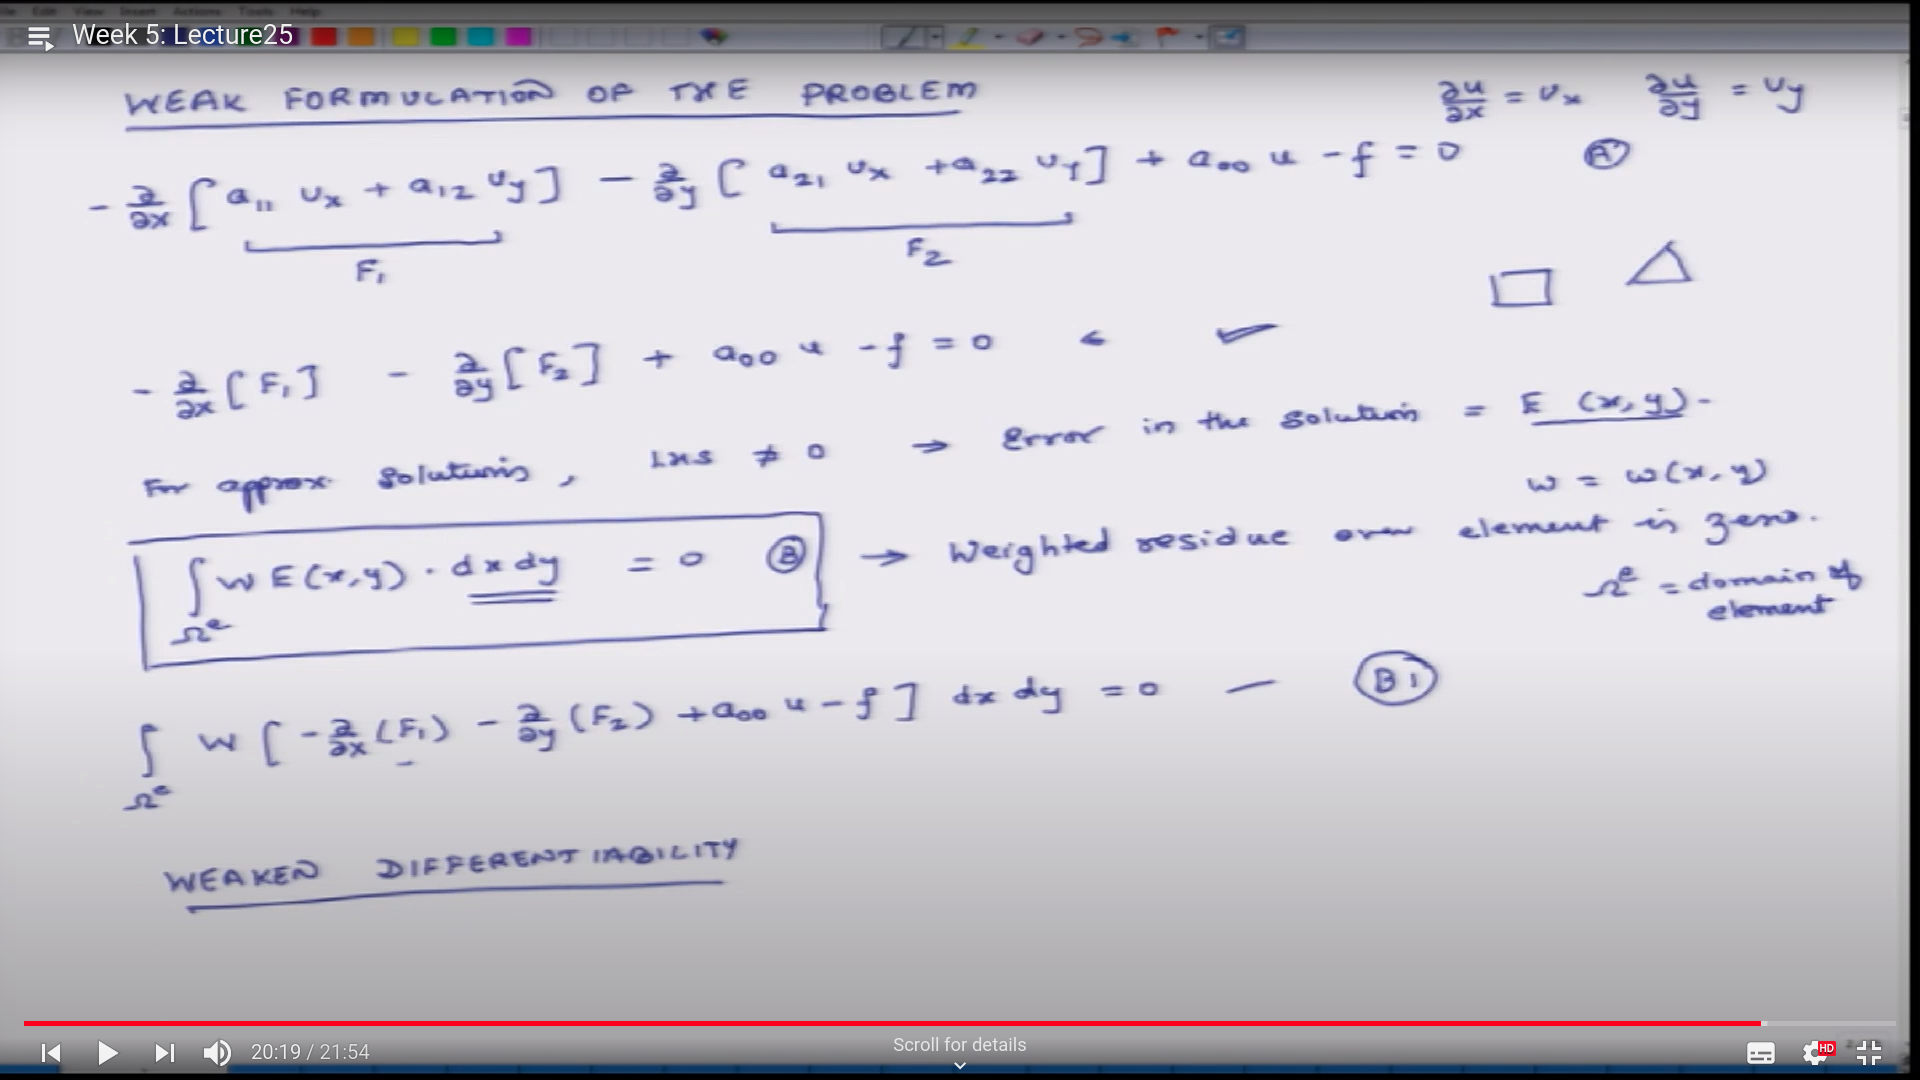 File Edit View Insert Actions Tools Help
Week 5: Lecture25
WEAK FORMULATION OF THE PROBLEM
∂u/∂x = u_x   ∂u/∂y = u_y
- ∂/∂x [a₁₁ u_x + a₁₂ u_y] - ∂/∂y [a₂₁ u_x + a₂₂ u_y] + a₀₀ u - f = 0   (A')
F₁   F₂
- ∂/∂x [F₁] - ∂/∂y [F₂] + a₀₀ u - f = 0 ← ✓
For approx. solutions, LHS ≠ 0 → Error in the solution = E (x, y).
w = w(x, y)
∫_Ωᵉ W E(x,y) · dx dy = 0 (B) → Weighted residue over element is zero.
Ωᵉ = domain of
element
∫_Ωᵉ W [ - ∂/∂x (F₁) - ∂/∂y (F₂) + a₀₀ u - f ] dx dy = 0 — (B1)
WEAKEN DIFFERENTIABILITY
20:19 / 21:54
Scroll for details
HD